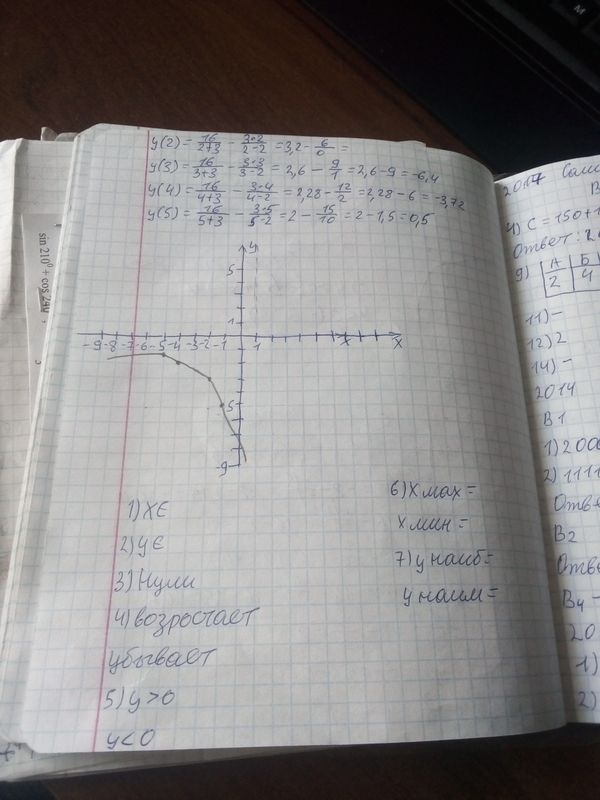 y(2) = 16/2+3 - 3·2/2-2 = 3,2 - 6/0 =
y(3) = 16/3+3 - 3·3/3-2 = 2,6 - 9/1 = 2,6-9 = -6,4
y(4) = 16/4+3 - 3·4/4-2 = 2,28 - 12/2 = 2,28-6 = -3,72
y(5) = 16/5+3 - 3·5/5-2 = 2 - 15/10 = 2-1,5 = 0,5
sin 210° + cos 240
y
5
1
-9 -8 -7 -6 -5 -4 -3 -2 -1 1 x
5
-9
1) XЄ
2) уЄ
3) Нули
4) возростает
убывает
5) y>0
y<0
6) X мах =
X мин =
7) у наиб =
у наим =
2017
В
4) C = 150+1
Ответ: 2
9) А Б
2 4
11) -
12) 2
14) -
2014
B1
1) 200
2) 1111
Отве
B2
Отве
B4 -
20
1)
2)